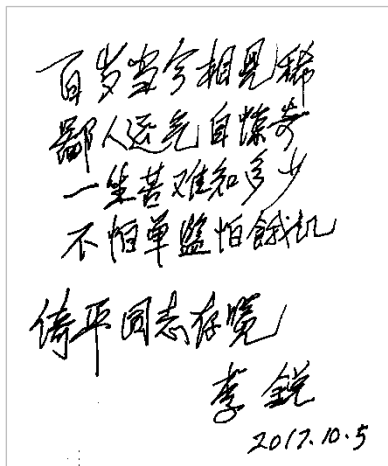 百岁当今相见稀
鄙人运气自惊奇
一生苦难知多少
不怕单监怕饿饥
倚平同志存览
李锐
2017.10.5